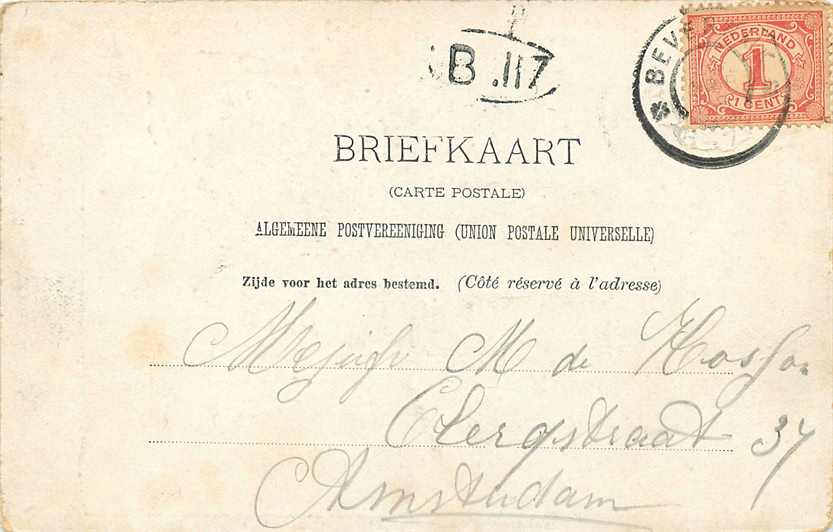 B.117
BEVE
NEDERLAND
1
1 CENT
BRIEFKAART
(CARTE POSTALE)
ALGEMEENE POSTVEREENIGING (UNION POSTALE UNIVERSELLE)
Zijde voor het adres bestemd. (Côté réservé à l'adresse)
Mejufr M de
Clercqstraat 37
Amsterdam